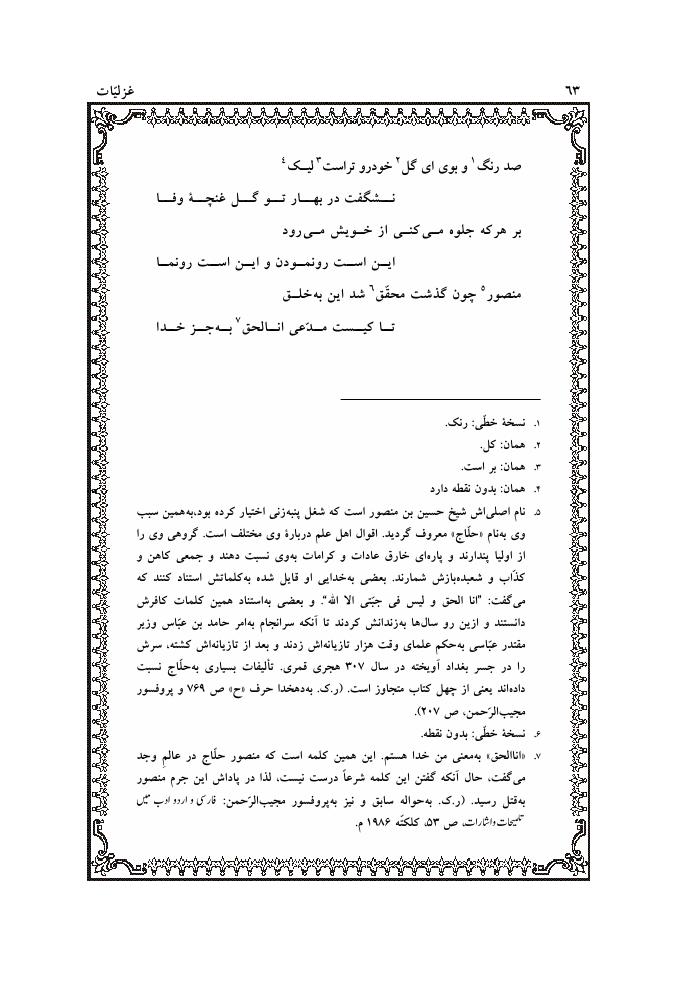 ۶۳ غزلیّات
صد رنگ۱ و بوی ای گل۲ خودرو تراست۳ لیـک۴
نـــشگفت در بهـــار تـــو گـــل غنچـــهٔ وفـــا
بر هرکه جلوه مـی‌کنـی از خـویش مـی‌رود
ایـن اسـت رونمـودن و ایـن اسـت رونمـا
منصور۵ چون گذشت محقّق۶ شد این به‌خلـق
تـــا کیـــست مـــدّعی انـــالحق۷ بـــه‌جـــز خـــدا
۱. نسخهٔ خطّی: رنک.
۲. همان: کل.
۳. همان: بر است.
۴. همان: بدون نقطه دارد
۵. نام اصلی‌اش شیخ حسین بن منصور است که شغل پنبه‌زنی اختیار کرده بود،به‌همین سبب
وی به‌نام «حلّاج» معروف گردید. اقوال اهل علم دربارهٔ وی مختلف است. گروهی وی را
از اولیا پندارند و پاره‌ای خارق عادات و کرامات به‌وی نسبت دهند و جمعی کاهن و
کذّاب و شعبده‌بازش شمارند. بعضی به‌خدایی او قایل شده به‌کلماتش استناد کنند که
می‌گفت: "انا الحق و لیس فی جبّتی الا الله". و بعضی به‌استناد همین کلمات کافرش
دانستند و ازین رو سال‌ها به‌زندانش کردند تا آنکه سرانجام به‌امر حامد بن عبّاس وزیر
مقتدر عبّاسی به‌حکم علمای وقت هزار تازیانه‌اش زدند و بعد از تازیانه‌اش کشته، سرش
را در جسر بغداد آویخته در سال ۳۰۷ هجری قمری. تألیفات بسیاری به‌حلّاج نسبت
داده‌اند یعنی از چهل کتاب متجاوز است. (ر.ک. به‌دهخدا حرف «ح» ص ۷۶۹ و پروفسور
مجیب‌الرّحمن، ص ۲۰۷).
۶. نسخهٔ خطّی: بدون نقطه.
۷. «اناالحق» به‌معنی من خدا هستم. این همین کلمه است که منصور حلّاج در عالمِ وجد
می‌گفت، حال آنکه گفتن این کلمه شرعاً درست نیست، لذا در پاداش این جرم منصور
به‌قتل رسید. (ر.ک. به‌حواله سابق و نیز به‌پروفسور مجیب‌الرّحمن: فارسی و اردو ادب میں
تلمیحات و اشارات، ص ۵۳، کلکتّه ۱۹۸۶ م.